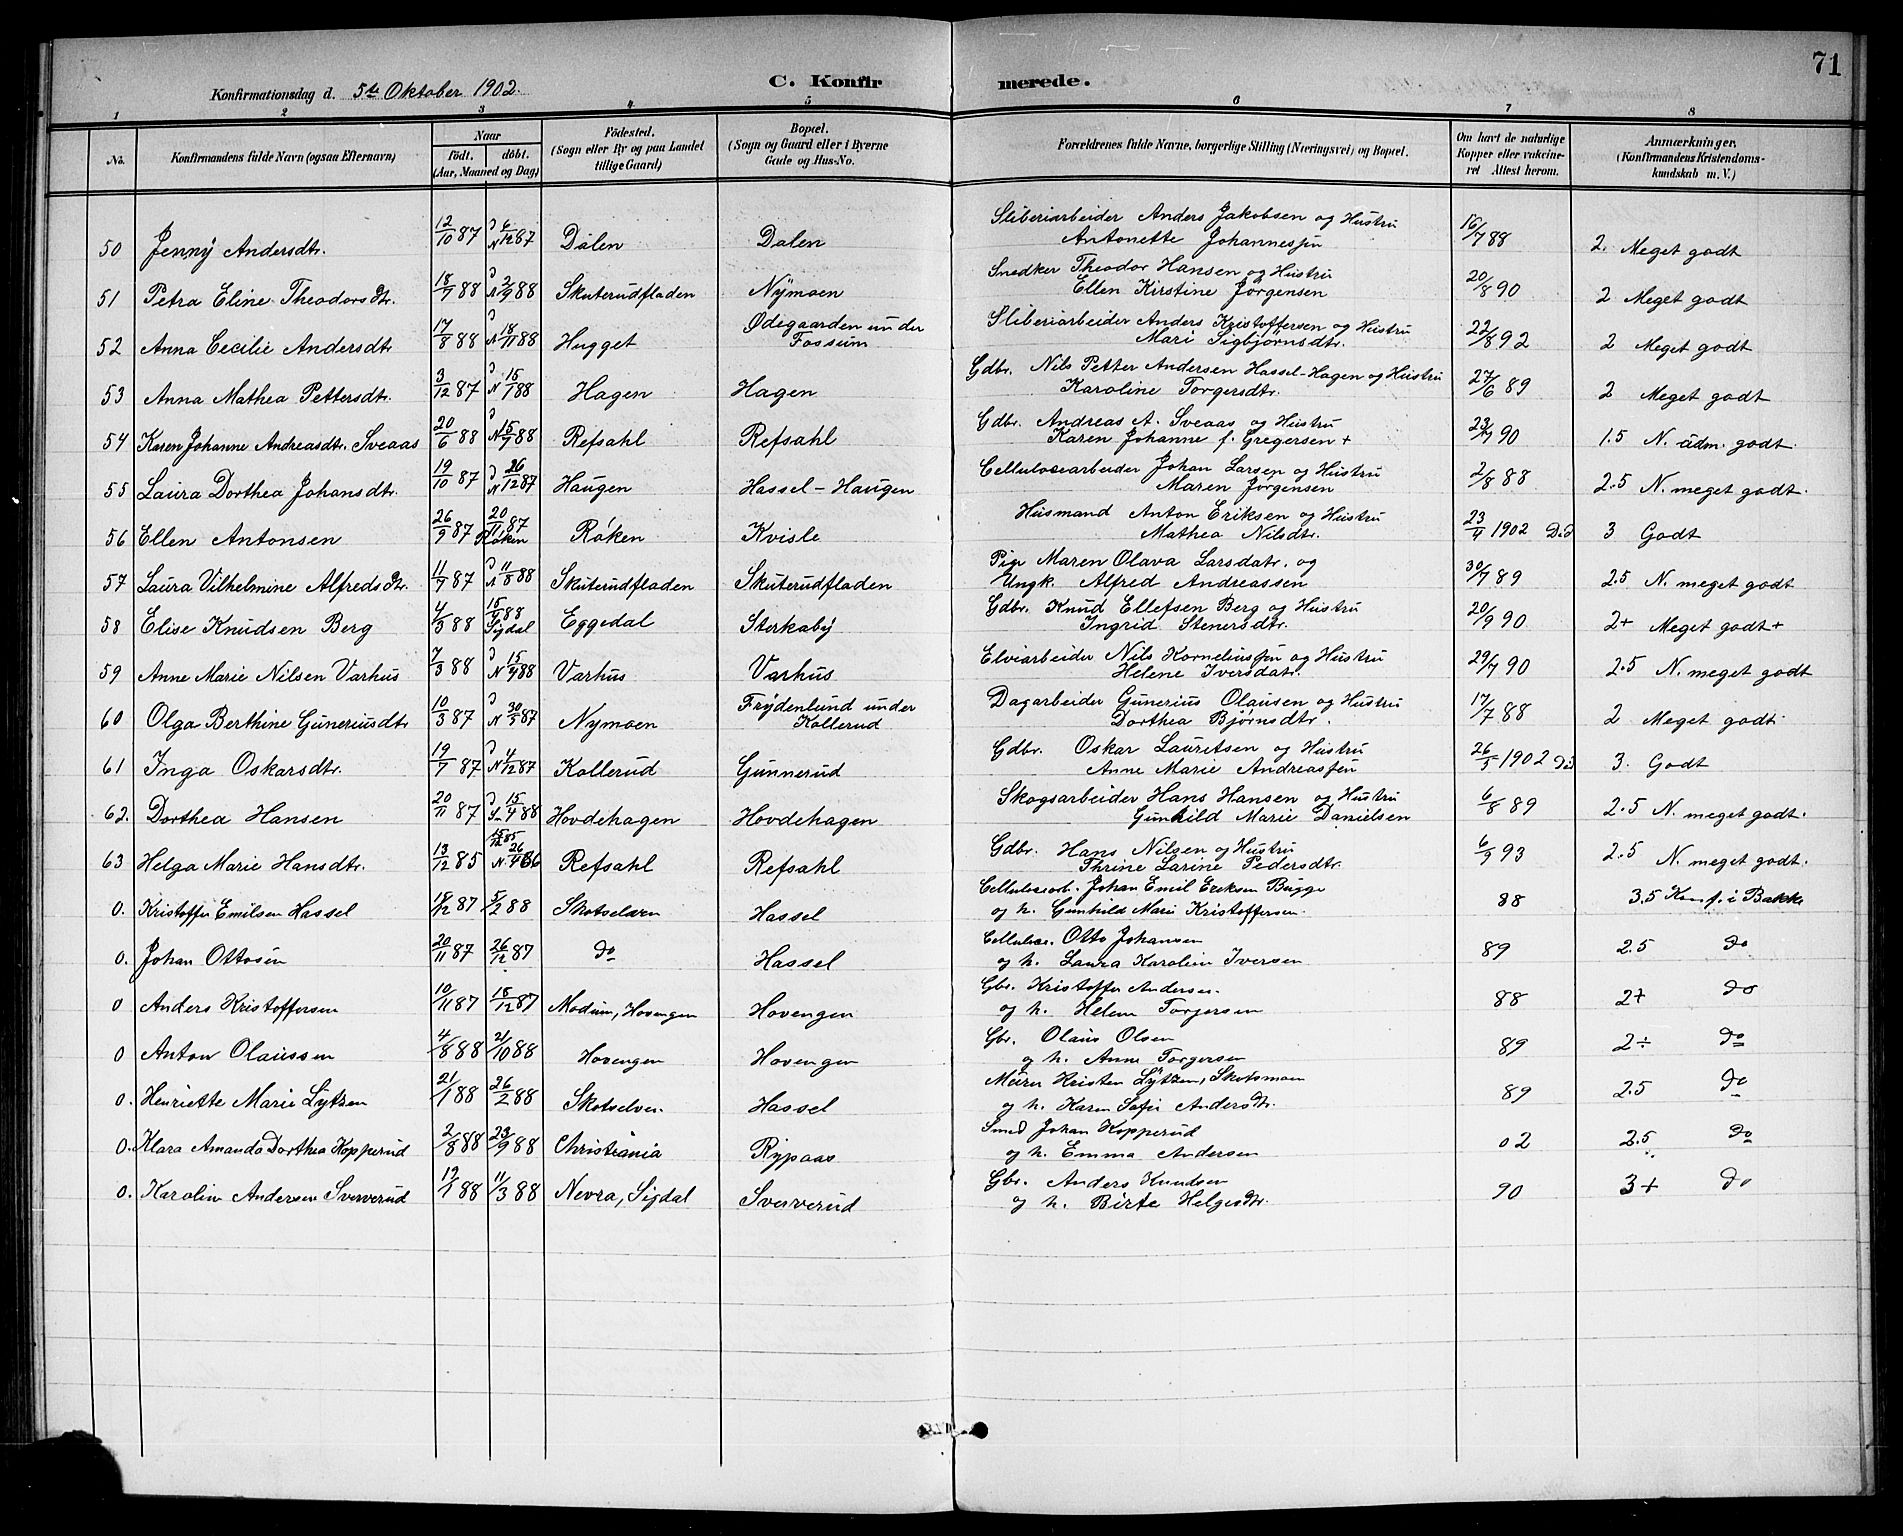 71
Konfirmationsdag d. 5te Oktober 1902.
C. Konfir merede.
1 2 3 4 5 6 7 8
No.
Konfirmandens fulde Navn (ogsaa Efternavn)
Naar
födt. döbt.
(Aar, Maaned og Dag)
Födested.
(Sogn eller By og paa Landet
tillige Gaard)
Bopæl.
(Sogn og Gaard eller i Byerne
Gade og Hus-No.
Forældrenes fulde Navne, borgerlige Stilling (Næringsvei) og Bopæl.
Om havt de naturlige
Kopper eller vakcine-
ret Attest herom.
Anmærkninger.
(Konfirmandens Kristendoms-
kundskab m. V.)
50 Jenny Andersdtr. 12/10 87 N 6/12 87 Dalen Dalen Sliberiarbeider Anders Jakobsen og Hustru
Antonette Johannessen 16/7 88 2. Meget godt
51 Petra Eline Theodorsdtr. 18/7 88 N 2/9 88 Skuterudfladen Nymoen Snedker Theodor Hansen og Hustru
Ellen Kirstine Jørgensen 20/8 90 2 Meget godt
52 Anna Cecilie Andersdtr 17/8 88 N 18/11 88 Hugget Ødegaarden under
Fossum Sliberiarbeider Anders Kristoffersen og Hustru
Mari Sigbjørnsdtr. 22/8 92 2 Meget godt
53 Anna Mathea Pettersdtr. 3/12 87 N 15/1 88 Hagen Hagen Gdbr. Nils Petter Andersen Hassel-Hagen og Hustru
Karoline Torgersdtr. 27/6 89 2 Meget godt
54 Karen Johanne Andreasdtr. Sveaas 20/6 88 N 15/9 88 Refsahl Refsahl Gdbr. Andreas A. Sveaas og Hustru
Karen Johanne f. Gregersen + 23/7 90 1.5 N. udm. godt.
55 Laura Dorthea Johansdtr. 19/10 87 N 26/12 87 Haugen Hassel-Haugen Cellulosearbeider Johan Larsen og Hustru
Maren Jørgensen 2/8 88 2.5 N. meget godt.
56 Ellen Antonsen 26/9 87 20/11 87
Røken Røken Kvisle Husmand Anton Eriksen og Hustru
Mathea Nilsdtr. 23/4 1902 3 Godt
57 Laura Vilhelmine Alfredsdtr. 11/7 87 N 11/8 88 Skuterudfladen Skuterudfladen Pige Maren Olava Larsdatr. og
Ungk. Alfred Andreassen 30/7 89 2.5 N. meget godt
58 Elise Knudsen Berg 4/3 88 15/9 88
Sigdal Eggedal Sterkaby Gdbr. Knud Ellefsen Berg og Hustru
Ingrid Stenersdtr. 20/9 90 2+ Meget godt+
59 Anne Marie Nilsen Varhus 7/3 88 N 15/4 88 Varhus Varhus Elviarbeider Nils Korneliussen og Hustru
Helene Iversdatr. 29/7 90 2.5 N. meget godt
60 Olga Berthine Guneriusdtr 10/3 87 N 30/5 87 Nymoen Frydenlund under
Kollerud Dagarbeider Gunerius Olausen og Hustru
Dorthea Bjørnsdtr. 17/7 88 2 Meget godt.
61 Inga Oskarsdtr. 19/7 87 N 4/12 87 Kollerud Gunnerud Gdbr. Oskar Lauritsen og Hustru
Anne Marie Andreassen 26/5 1902 3. Godt
62. Dorthea Hansen 20/11 87 15/4 88 Hovdehagen Hovdehagen Skogsarbeider Hans Hansen og Hustru
Gunhild Marie Danielsen 6/8 89 2.5 N. meget godt.
63 Helga Marie Hansdtr. 13/12 85 15/12 85
N. 26/4 86 Refsahl Refsahl Gdbr. Hans Nilsen og Hustru
Thrine Larine Pedersdtr. 6/9 93 2.5 N. meget godt.
0. Kristoffer Emilsen Hassel 18/12 87 5/2 88 Skotselven Hassel Cellulosearb. Johan Emil Eriksen Bugge
og h. Gunhild Marie Kristoffersen. 88 3.5 Konf. i Bakke
0. Johan Ottosen 20/11 87 26/12 87 do Hassel Cellulose. Otto Johansen
og h. Laura Karoline Iversen 89 2.5 Do
0 Anders Kristoffersen 10/11 87 18/12 87 Modum, Hovengen Hovengen Gbr. Kristoffer Andersen.
og h. Helene Torgersen 88 2+ Do
0 Anton Olaussen 4/8 88 21/10 88 Hovengen Hovengen Gbr. Olaus Olsen
og h. Anne Torgersen 89 2÷ Do
0. Henriette Marie Lytzen 21/1 88 26/2 88 Skotselven Hassel Murer Kristen Lytzen, Skotsmoen
og h. Karen Sofie Andersdtr. 89 2.5 Do
0. Klara Amanda Dorthea Kopperud 2/8 88 23/9 88 Christiania Rypaas Smed Johan Kopperud
og h. Emma Andersen 02 2.5 Do
0. Karolin Andersen Sververud 12/1 88 11/3 88 Nevra, Sigdal Sververud Gbr. Anders Knudsen
og h. Birte Helgesdtr. 90 3+ Do